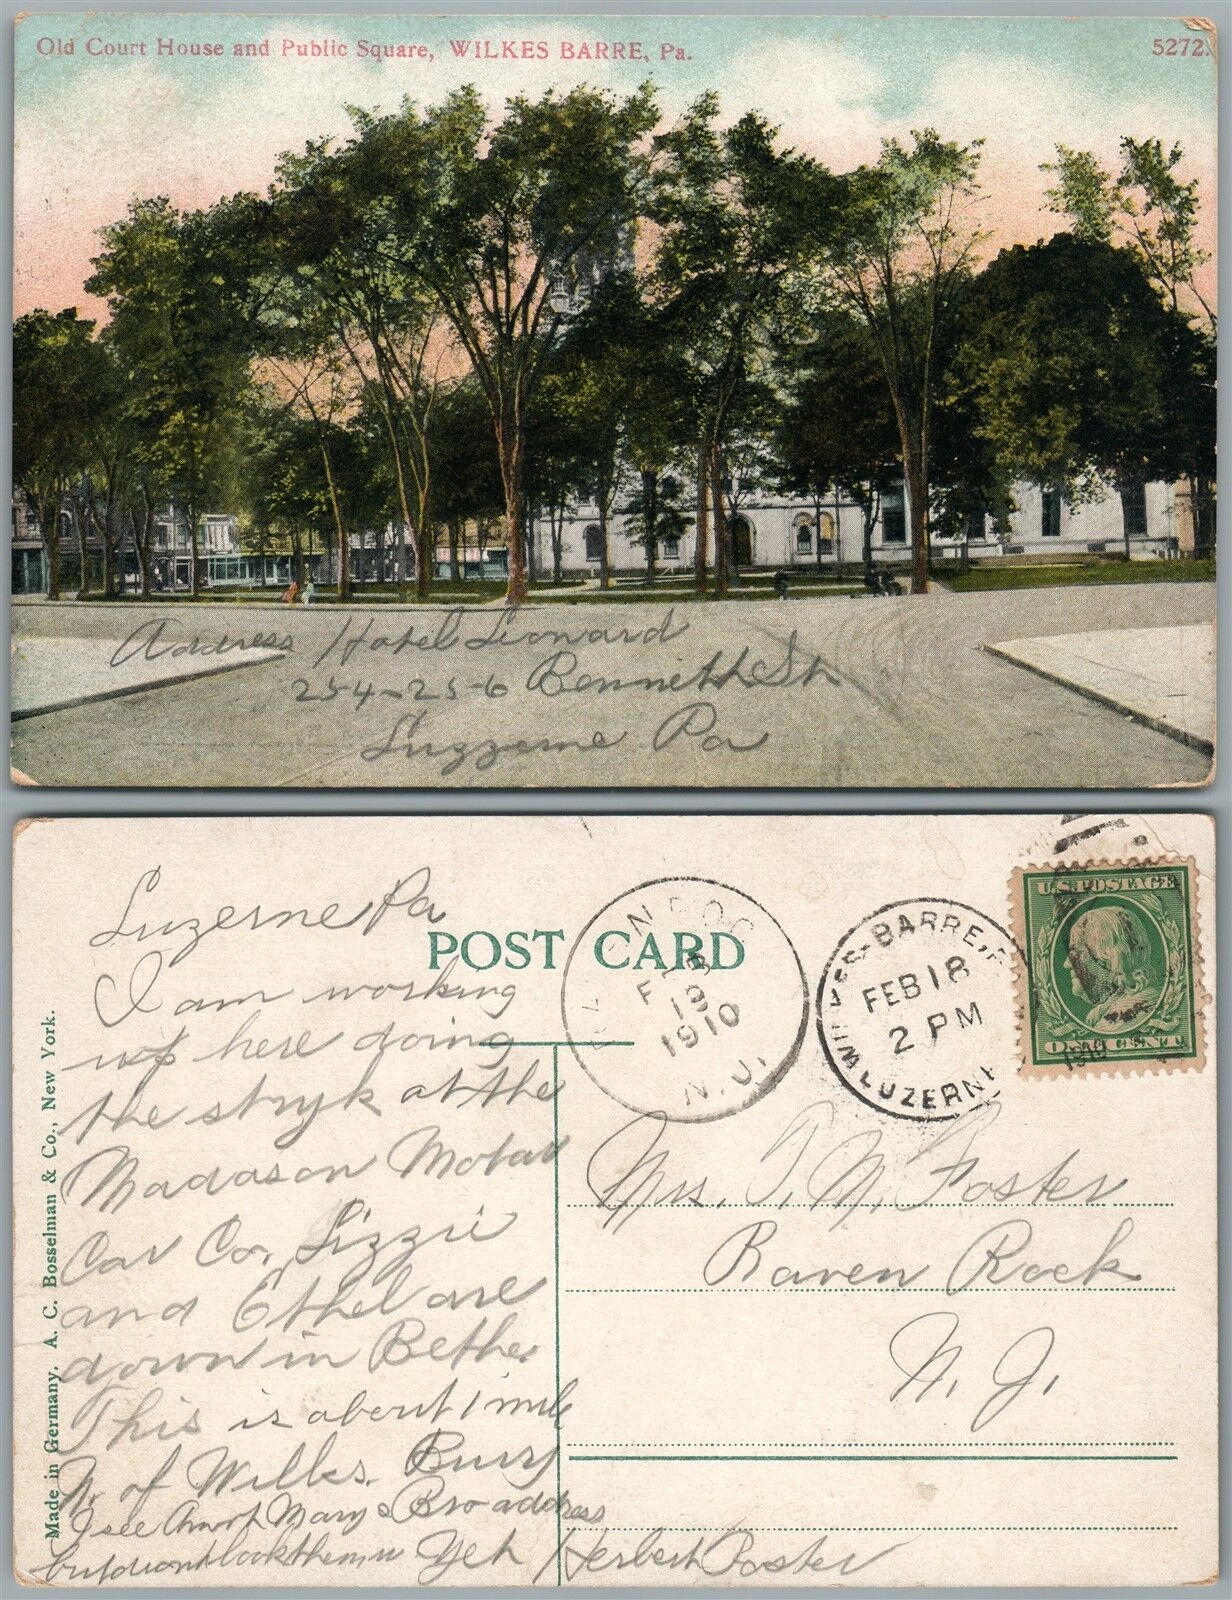 Old Court House and Public Square, WILKES BARRE, Pa.
5272.
Address Hotel Leonard
254-256 Bennett St
Luzzerne Pa
Luzerne Pa
POST CARD
I am working
up here doing
the stryk at the
Madason Motar
Car Co, Lizzie
and Ethel are
down in Bethe.
This is about 1 mile
N. of Wilks. Burry
I see Aunt Mary & Bro address
but dront look them u Yeh
Herbert Poster
Made in Germany. A. C. Bosselman & Co., New York.
FEB
19
1910
N.J.
WILKES-BARRE, P
FEB 18
2 PM
LUZERNE
U.S. POSTAGE
ONE CENT
1910
Mrs. P. M. Foster
Raven Rock
N. J.